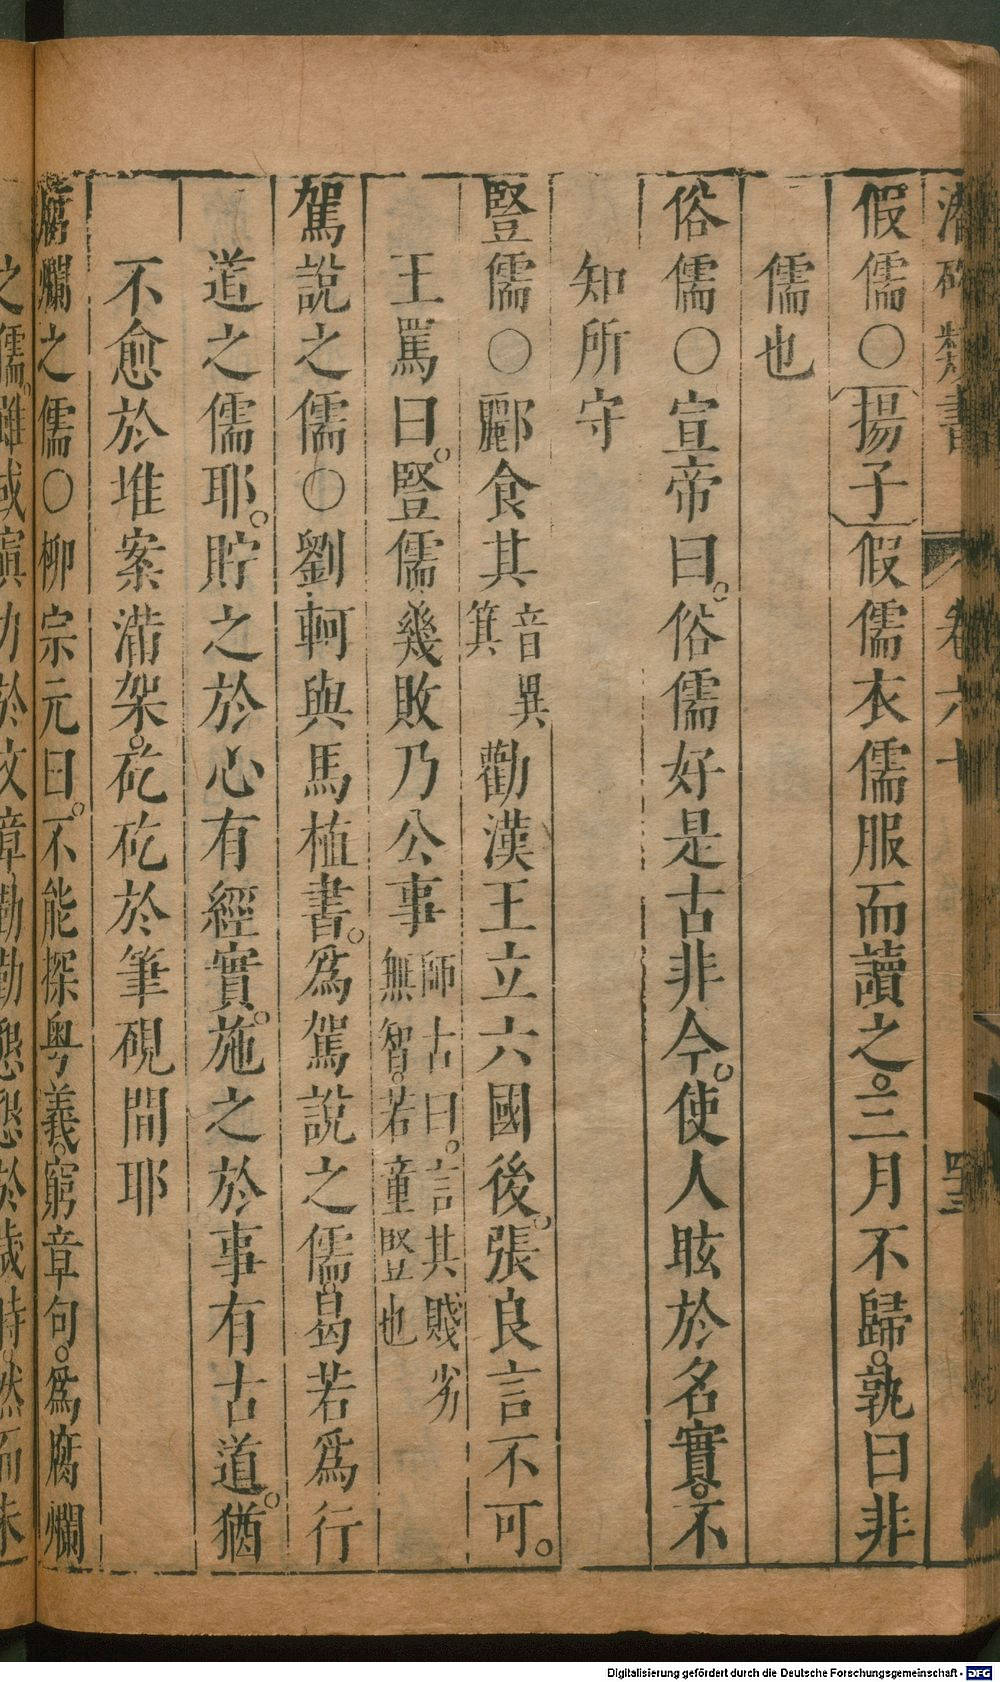 潛確類書 卷六十 四三
假儒○揚子假儒衣儒服而讀之。三月不歸。孰曰非
儒也
俗儒○宣帝曰。俗儒好是古非今。使人眩於名實。不
知所守
豎儒○酈食其音異箕勸漢王立六國後。張良言不可。
王罵曰。豎儒幾敗乃公事師古曰。言其賤劣無智。若童豎也
駕說之儒○劉軻與馬植書。爲駕說之儒。曷若爲行
道之儒耶。貯之於心有經實。施之於事有古道。猶
不愈於堆案滿架。矻矻於筆硯間耶
腐爛之儒○柳宗元曰。不能探粵義。窮章句。爲腐爛
之儒。雖或 力於文章勤勤懇懇於歲時。然而未
Digitalisierung gefördert durch die Deutsche Forschungsgemeinschaft - DFG